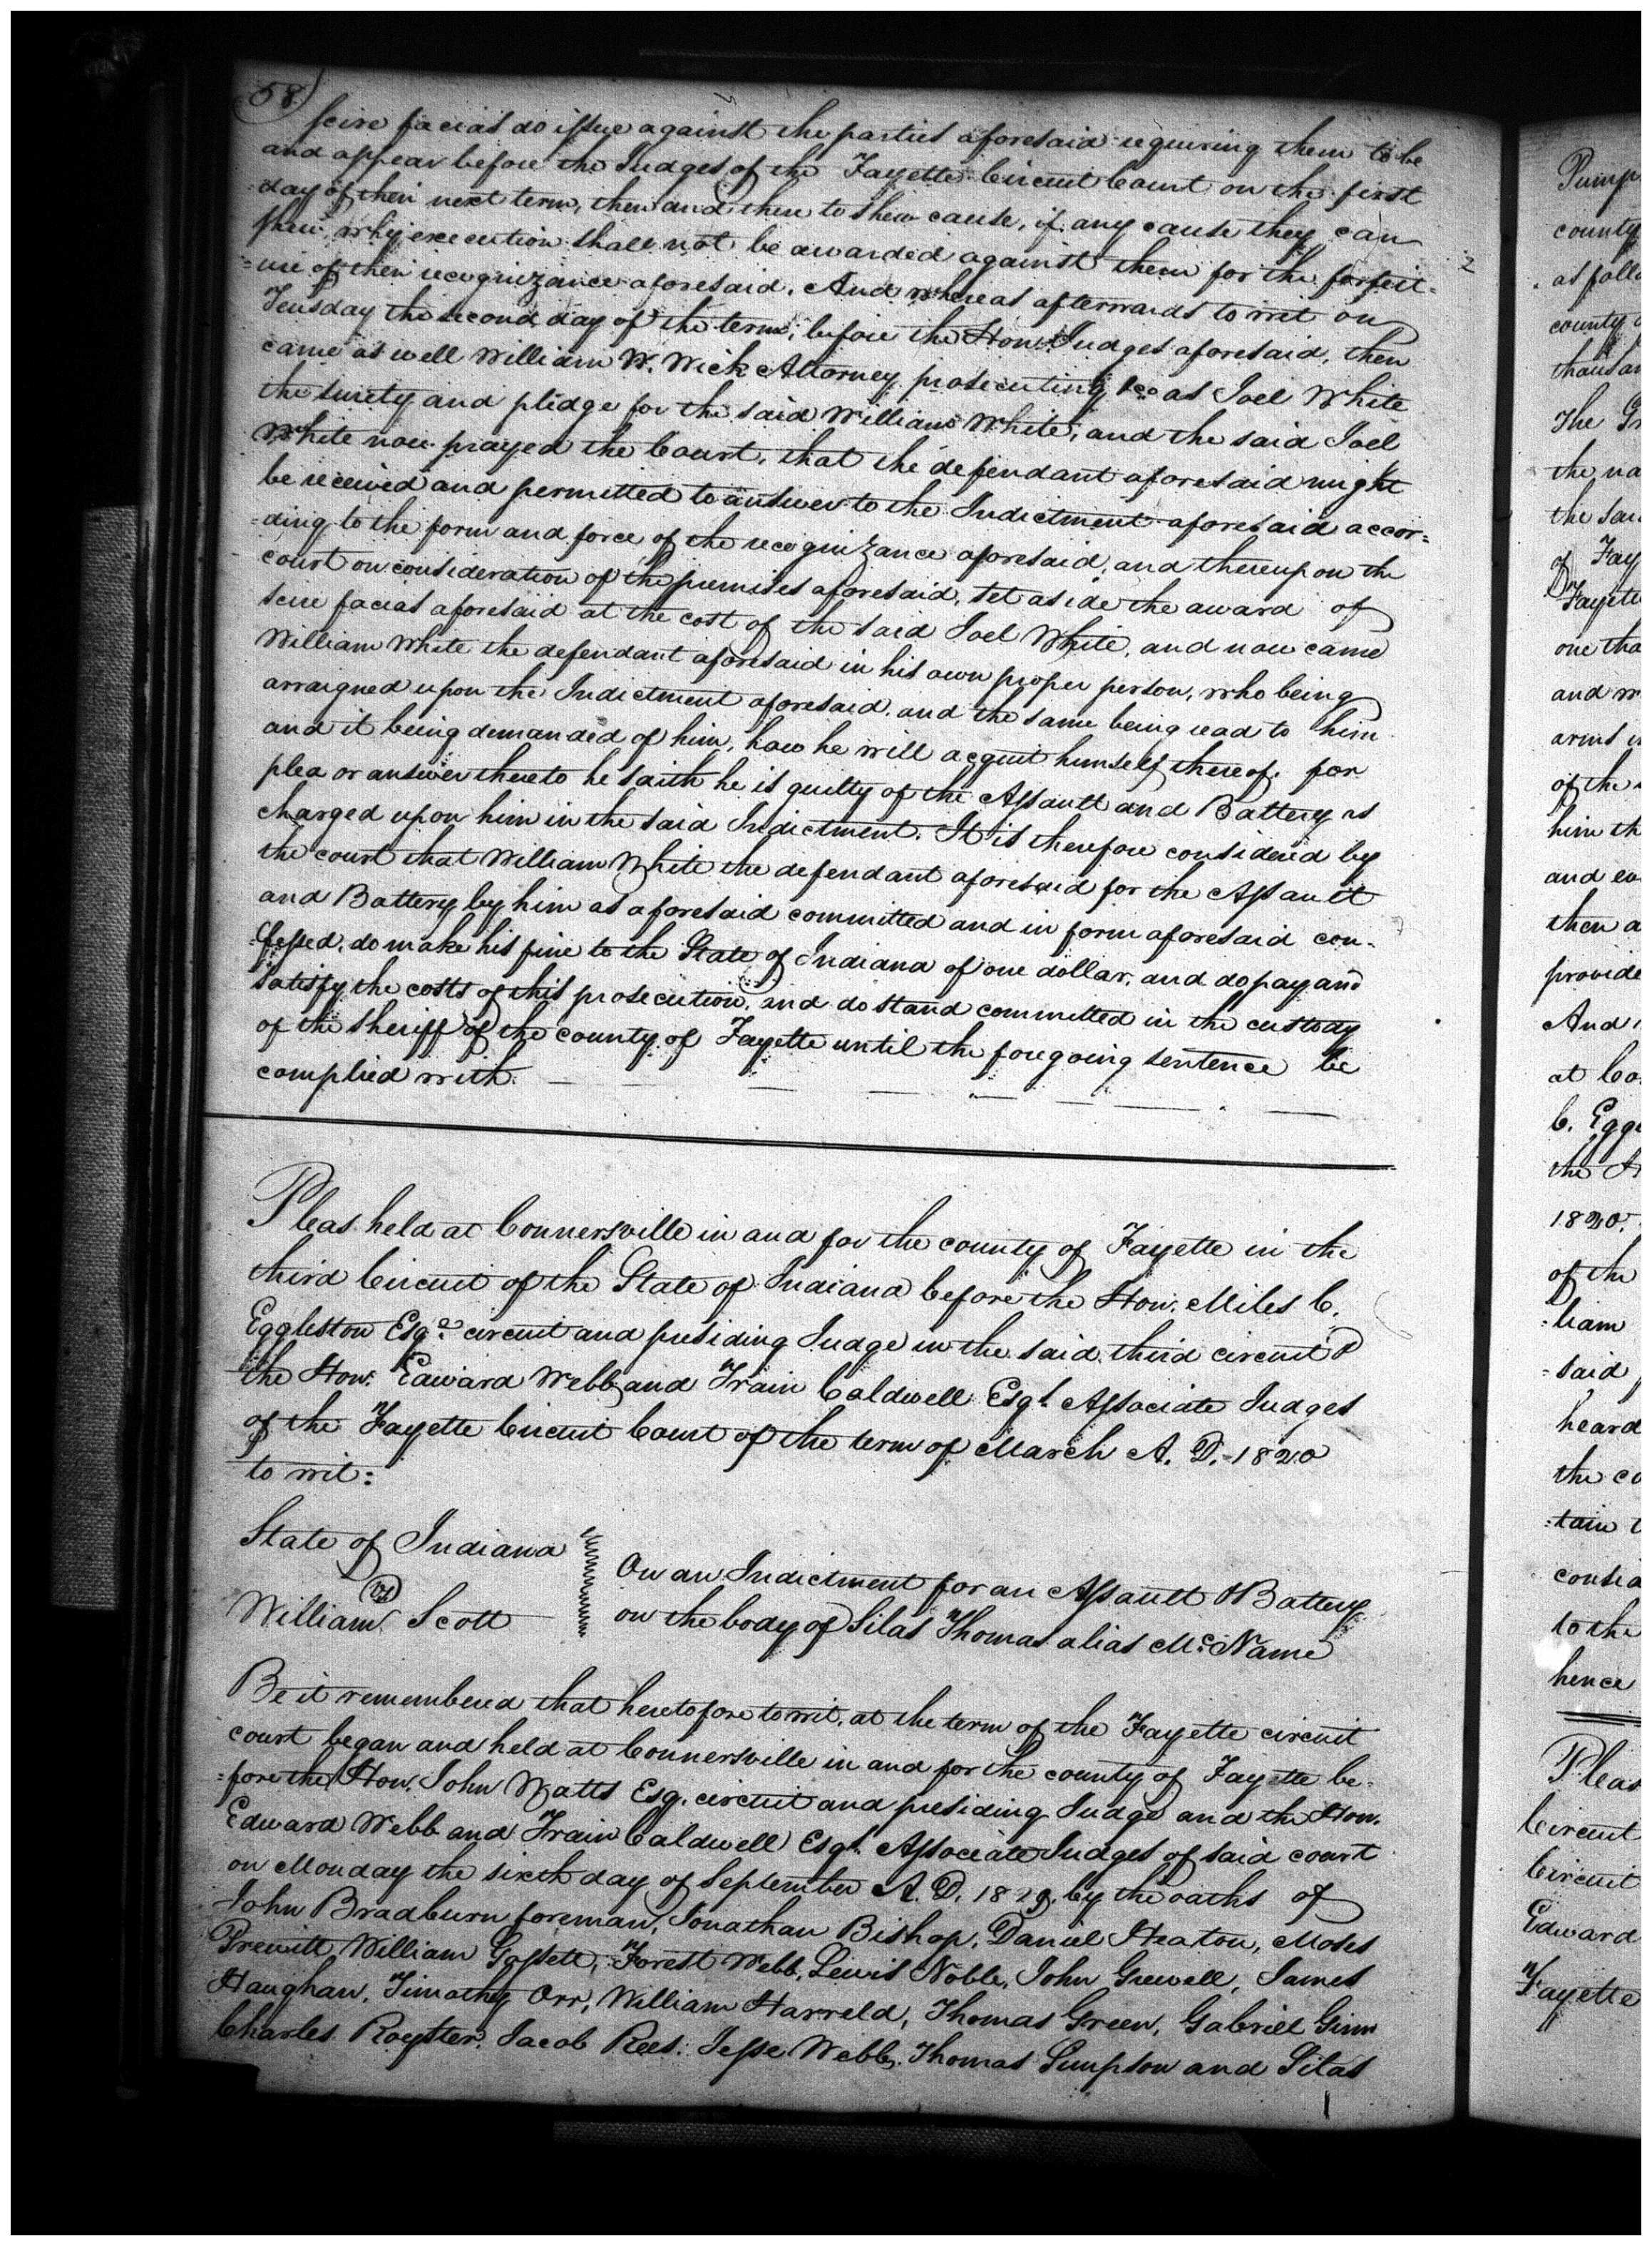 58
scire facias do issue against the parties aforesaid requiring them to be
and appear before the Judges of the Fayette Circuit Court on the first
day of their next term, then and there to shew cause, if any cause they can
shew why execution shall not be awarded against them for the forfeit-
=ure of their recognizance aforesaid. And whereas afterwards to wit on
Teusday the second day of the term, before the Hon. Judges aforesaid, then
came as well William W. Wick Attorney prosecuting &c as Joel White
the surety and pledge for the said William White, and the said Joel
White now prayed the Court, that the defendant aforesaid might
be received and permitted to answer to the Indictment aforesaid accor=
=ding to the form and force of the recognizance aforesaid, and thereupon the
court on consideration of the premises aforesaid, set aside the award of
scire facias aforesaid at the cost of the said Joel White, and now came
William White the defendant aforesaid in his own proper person, who being
arraigned upon the Indictment aforesaid, and the same being read to him
and it being demanded of him, how he will acquit himself thereof. for
plea or answer thereto he saith he is guilty of the Assault and Battery as
charged upon him in the said Indictment. It is therefore considered by
the court that William White the defendant aforesaid for the Assault
and Battery by him as aforesaid committed and in form aforesaid con-
=fessed, do make his fine to the State of Indiana of one dollar, and do pay and
satisfy the costs of this prosecution, and do stand committed in the custody
of the Sheriff of the county of Fayette until the foregoing sentence be
complied with.
Pleas held at Connersville in and for the county of Fayette in the
third Circuit of the State of Indiana before the Hon. Miles C.
Eggleston Esqr. circuit and presiding Judge in the said third circuit &
the Hon. Edward Webb and Train Caldwell Esqs. Associate Judges
of the Fayette Circuit Court of the term of March A. D. 1820
to wit:
State of Indiana
vs
William Scott
On an Indictment for an Assault & Battery
on the body of Silas Thomas alias McName
Be it remembered that heretofore to wit, at the term of the Fayette circuit
court began and held at Connersville in and for the county of Fayette be-
=fore the Hon. John Watts Esq. circuit and presiding Judge and the Hon.
Edward Webb and Train Caldwell Esqs. Associate Judges of said court
on Monday the sixth day of September A. D. 1819. by the oaths of
John Bradburn foreman, Jonathan Bishop, Daniel Heaton, Moses
Prewitt, William Gassett, Forest Webb, Lewis Noble, John Grewell, James
Haughan, Timothy Orr, William Harreld, Thomas Green, Gabriel Ginn
Charles Royster, Jacob Rees, Jesse Webb, Thomas Simpson and Silas
county
county
the
the
Fay
Fayette
and
of the
him
and
then a
provide
And
at
C.
the
1820.
of the
=liam
=said
heard
the
=tain
to the
hence
Pleas
Circuit
Circuit
Edward
Fayette